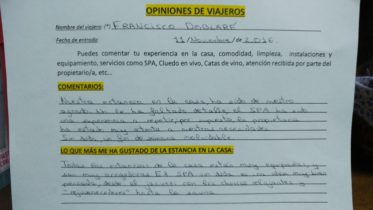 OPINIONES DE VIAJEROS
Nombre del viajero: (*) FRANCISCO
Fecha de entrada: 11/Noviembre/ de 2016.
Puedes comentar tu experiencia en la casa, comodidad, limpieza, instalaciones y
equipamiento, servicios como SPA, Cluedo en vivo, Catas de vino, atención recibida por parte del
propietario/a, etc..
COMENTARIOS:
Nuestra estancia en la casa, ha sido de nuestro
agrado. No le ha faltado detalle, el SPA ha sido
una experiencia a repetir, por supuesto, la propietaria
ha estado muy atenta a nuestras necesidades.
Sin duda, un fin de semana inolvidable.
LO QUE MÁS ME HA GUSTADO DE LA ESTANCIA EN LA CASA:
Todas las estancias de la casa están muy equipadas, y
son muy acogedoras. El SPA sin duda es una idea muy bien
pensada, desde el jacuzzi con los chorros relajantes y
hasta la sauna.